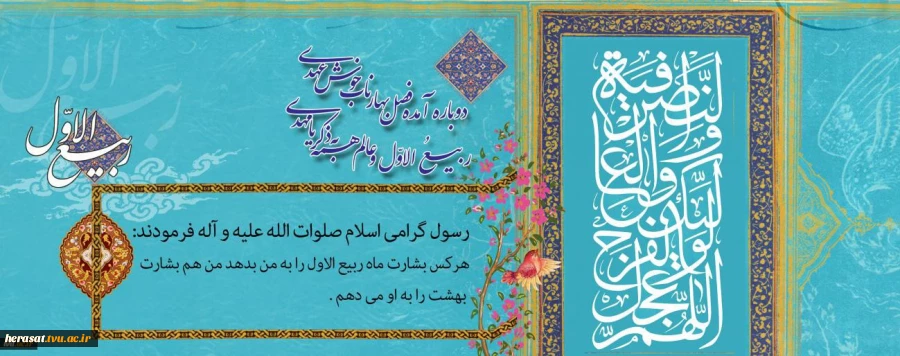 دوباره آمده فصل بهار ناب خوش عهدی
ربیعُ الاوّل و عالم همه به ذکر یا مهدی
ربیع الاوّل
رسول گرامی اسلام صلوات الله علیه و آله فرمودند:
هرکس بشارت ماه ربیع الاول را به من بدهد من هم بشارت
بهشت را به او می دهم .
اللّهمّ عجّل لولیّک الفرج والعافیة والنّصر
herasat.tvu.ac.ir